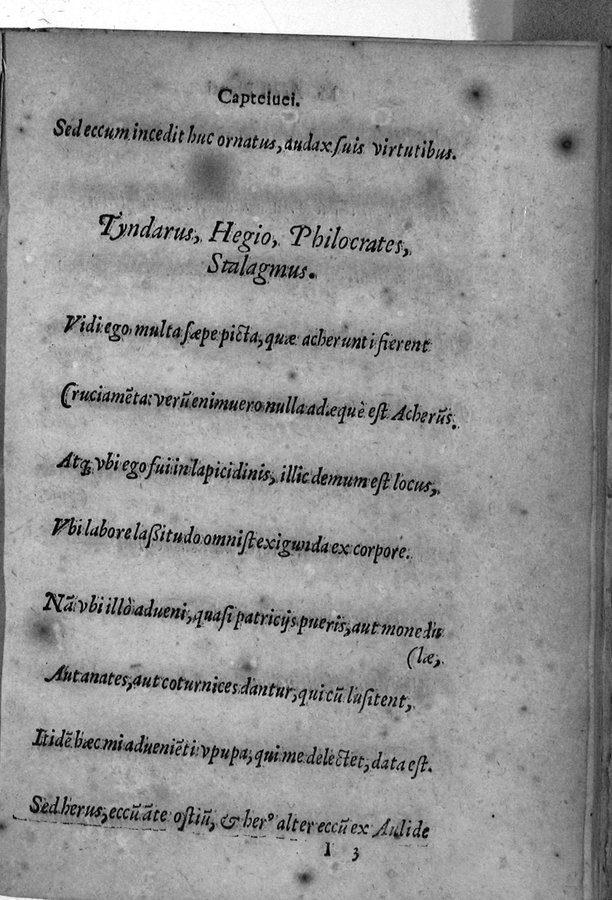 Capteiuei.
Sed eccum incedit huc ornatus, audax suis virtutibus.
Tyndarus, Hegio, Philocrates,
Stalagmus.
Vidi ego multa sæpe picta, quæ acherunti fierent
Cruciamẽta: verũ enimuero nulla adæquè est Acherũs.
Atq; vbi ego fui in lapicidinis, illic demum est locus,
Vbi labore laßitudo omnist exigunda ex corpore.
Nã vbi illò adueni, quasi patricijs pueris, aut monedu
(læ,
Aut anates, aut coturnices dantur, qui cũ lusitent,
Itidẽ hæc mi adueniẽti vpupa, qui me delectet, data est.
Sed herus, eccũ ãte ostiũ, & herꝰ alter eccũ ex Aulide
I 3